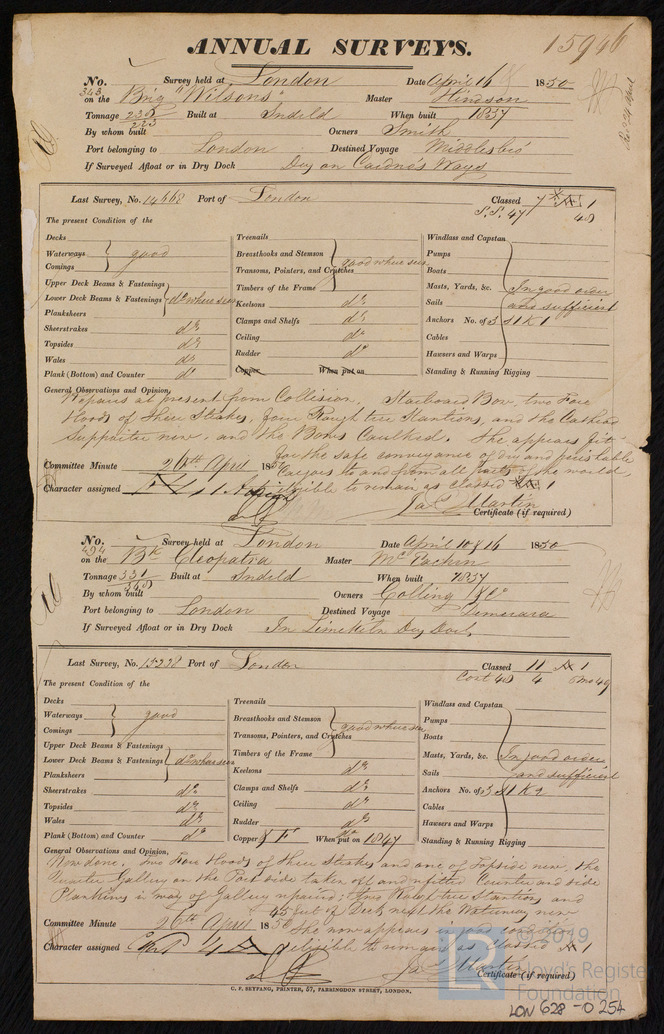 15946
ANNUAL SURVEYS.
No. 343 Survey held at London Date April 16 1850
on the Brig "Wilsons" Master Hindson
Tonnage 238 / 223 Built at Sndrld When built 1837
By whom built Owners Smith
Port belonging to London Destined Voyage Middlesbro'
If Surveyed Afloat or in Dry Dock Dry on Cairdno's Ways
Last Survey, No. 14668 Port of London Classed 7 Æ 1
S.S. 47 48
The present Condition of the
Decks
Waterways good
Comings
Upper Deck Beams & Fastenings
Lower Deck Beams & Fastenings do where seen
Planksheers
Sheerstrakes do
Topsides do
Wales do
Plank (Bottom) and Counter do
Treenails
Breasthooks and Stemson good where seen
Transoms, Pointers, and Crutches
Timbers of the Frame
Keelsons do
Clamps and Shelfs do
Ceiling do
Rudder do
Copper When put on
Windlass and Capstan
Pumps
Boats
Masts, Yards, &c. In good order
Sails and sufficient
Anchors No. of 3 S 1 K 1
Cables
Hawsers and Warps
Standing & Running Rigging
General Observations and Opinion,
Repairs at present from Collision, Starboard Bow, two Fore
Hoods of three Strakes, four Rough tree Stantions, and the Cathead
Supporter new, and the Bows Caulked. She appears fit
for the safe conveyance of dry and perishable
Committee Minute 26th April 1850 Cargoes to and from all parts of the world,
Character assigned eligible to remain as classed Æ 1
Jas Martin
Certificate (if required)
No. 494 Survey held at London Date April 10 & 16 1850
on the Bk Cleopatra Master
Tonnage 331 / 348 Built at Sndrld When built 1837
By whom built Owners Colling & Co
Port belonging to London Destined Voyage Demerara
If Surveyed Afloat or in Dry Dock In Limekiln Dry Dock
Last Survey, No. 15298 Port of London Classed 11 Æ 1
Cont 48 4 6mo 49
The present Condition of the
Decks
Waterways good
Comings
Upper Deck Beams & Fastenings
Lower Deck Beams & Fastenings do where seen
Planksheers
Sheerstrakes do
Topsides do
Wales do
Plank (Bottom) and Counter do
Treenails
Breasthooks and Stemson good where seen
Transoms, Pointers, and Crutches
Timbers of the Frame
Keelsons do
Clamps and Shelfs do
Ceiling do
Rudder do
Copper & Ft When put on 1847
Windlass and Capstan
Pumps
Boats
Masts, Yards, &c. In good order
Sails and sufficient
Anchors No. of 3 S 1 K 2
Cables
Hawsers and Warps
Standing & Running Rigging
General Observations and Opinion,
Now done. Two Fore Hoods of three strakes and one of Topside new, the
Quarter Gallery on the Port side taken off and refitted Counter and side
Planking in way of Gallery repaired; two Rough tree Stantions and
45 feet of Deck next the Waterway new
Committee Minute 26th April 1850 She now appears in good condition
Character assigned eligible to remain as classed Æ 1
Jas Martin
Certificate (if required)
C. F. SEYFANG, PRINTER, 57, FARRINGDON STREET, LONDON.
© 2019
Lloyd's Register
Foundation
LON 628-0254